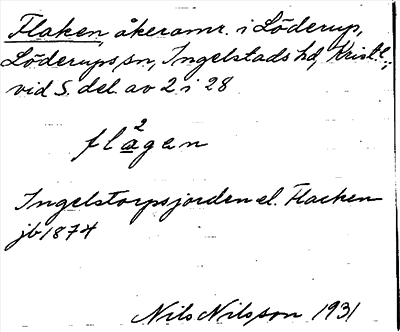 Flaken, åkeromr. i Löderup,
Löderups sn, Ingelstads hd, Krist.l.;
vid S. del. av 2 i 28
fla²gen
Ingelstorpsjorden el. Flacken
jb 1874
Nils Nilsson 1931